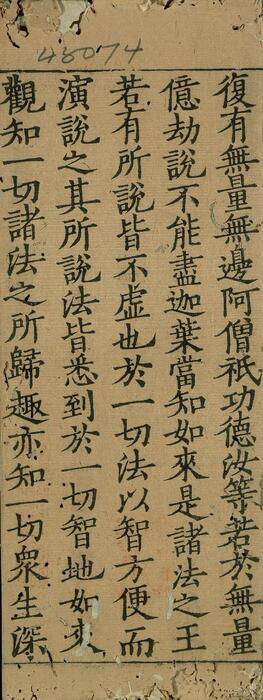 45074
復有無量無邊阿僧祇功德汝等若於無量
億劫說不能盡迦葉當知如來是諸法之王
若有所說皆不虛也於一切法以智方便而
演說之其所說法皆悉到於一切智地如來
觀知一切諸法之所歸趣亦知一切衆生深